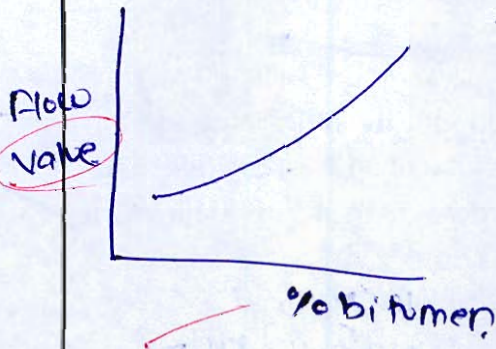 Flow
Value
% bitumen